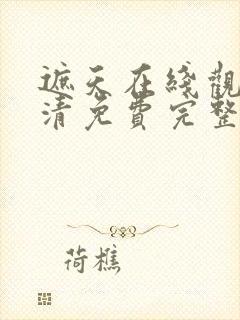 遮天在线觀
清免費完整
荷樵